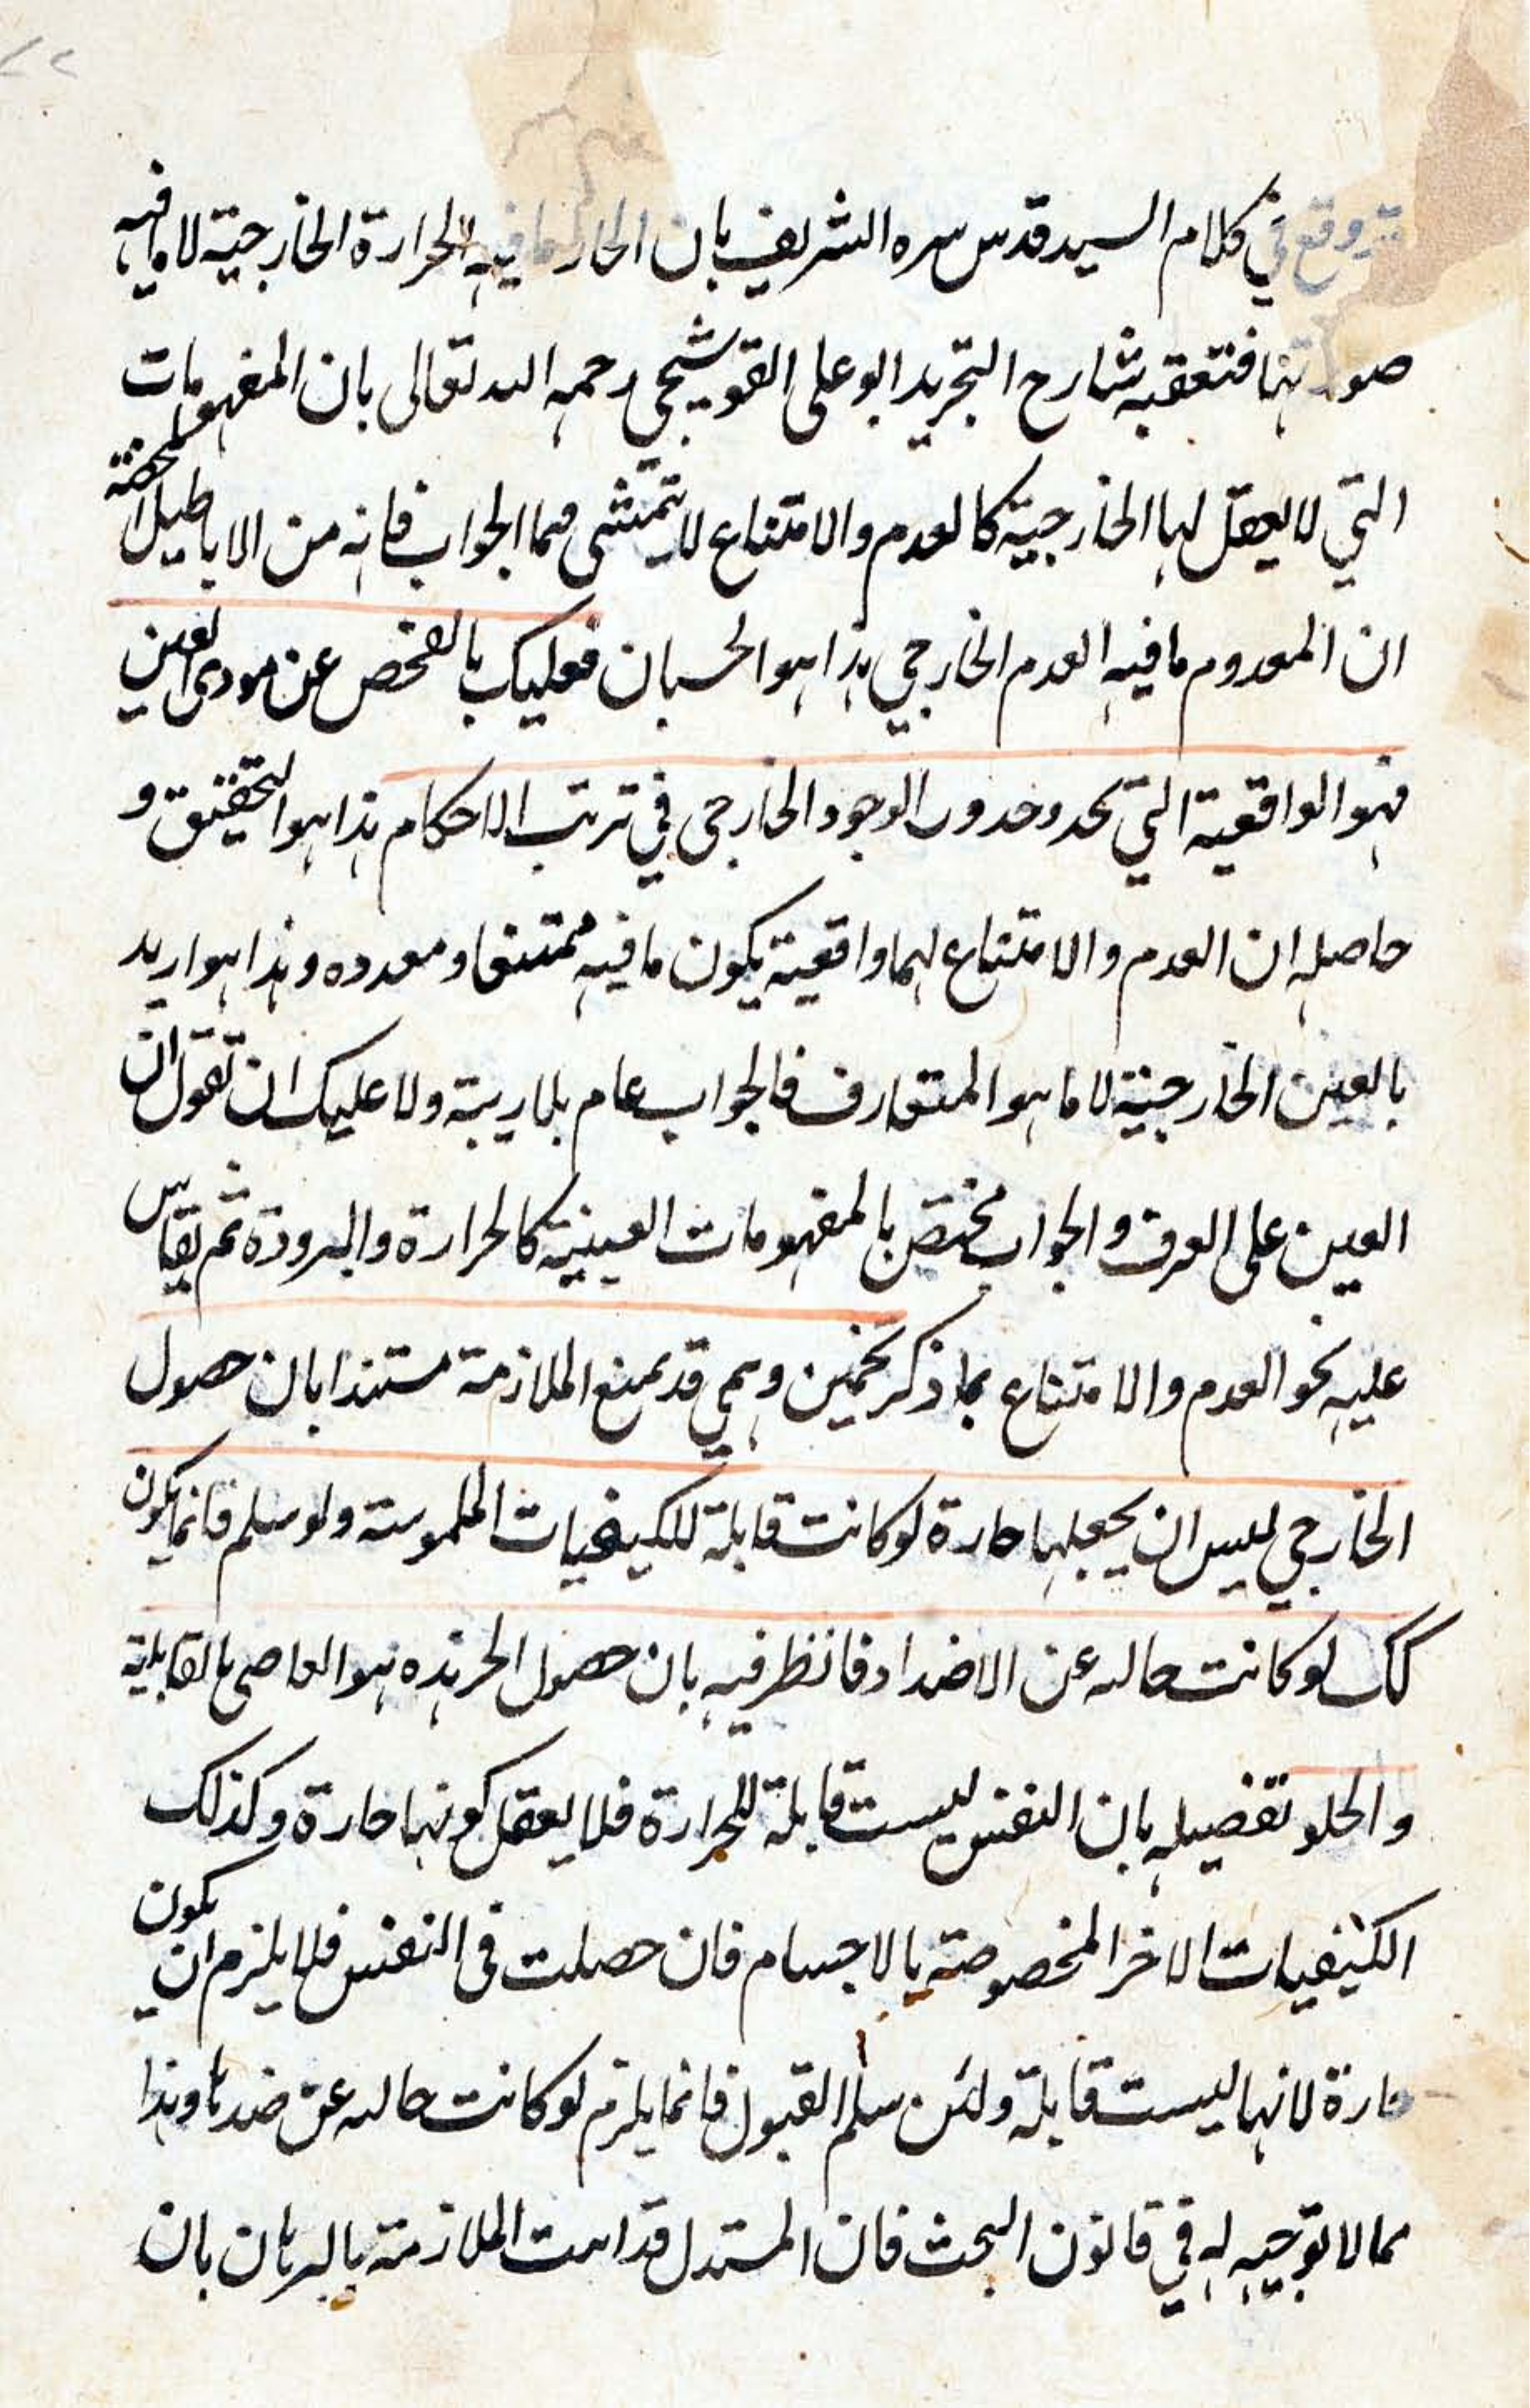 وقع في كلام السيد قدس سره الشريف بان الحار ما فيه الحرارة الخارجية لا ما فيه
صورتها فتعقبه شارح التجريد ابو علي القوشجي رحمه الله تعالى بان المفهومات
التي لا يعقل لها الخارجية كالعدم والامتناع لا يتمشى فيها الجواب فانه من الاباطيل المحضة
ان المعدوم ما فيه العدم الخارجي هذا هو الحسبان فعليك بالفحص عن مودى العين
فهو الواقعية التي يحدو حدو الوجود الخارجي في ترتب الاحكام هذا هو التحقيق و
حاصله ان العدم والامتناع لهما واقعية يكون ما فيه ممتنعا و معدوه وهذا هو اريد
بالعين الخارجية لا ما هو المتعارف فالجواب عام بلا ريبة ولا عليك ان تقول ان
العين على العرف والجواب مختص بالمفهومات العينية كالحرارة والبرودة ثم يقاس
عليه نحو العدم والامتناع بما ذكر تخمين وهمي قد يمنع الملازمة مستندا بان حصول
الخارجي ليس ان يجعلها حارة لو كانت قابلة للكيفيات الملموسة ولو سلم فانما يكون
كك لو كانت خاليه عن الاضداد فانظر فيه بان حصول الحر هذه هو العاصي بالقابلية
والخلو تفصيله بان النفس ليست قابلة للحرارة فلا يعقل كونها حارة وكذلك
الكيفيات الاخر المخصوصة بالاجسام فان حصلت في النفس فلا يلزم ان يكون
حارة لانها ليست قابلة ولئن سلم القبول فانما يلزم لو كانت خاليه عن ضدها وهذا
مما لا توجيه له في قانون البحث فان المستدل قد اثبت الملازمة بالبرهان بان